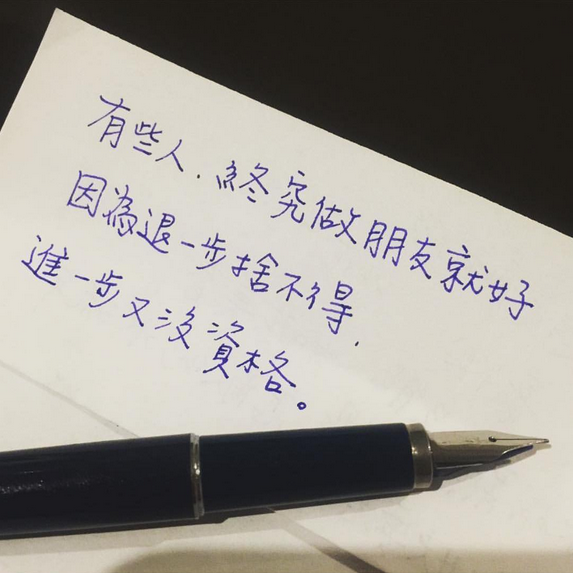 有些人．終究做朋友就好
因為退一步捨不得，
進一步又沒資格。